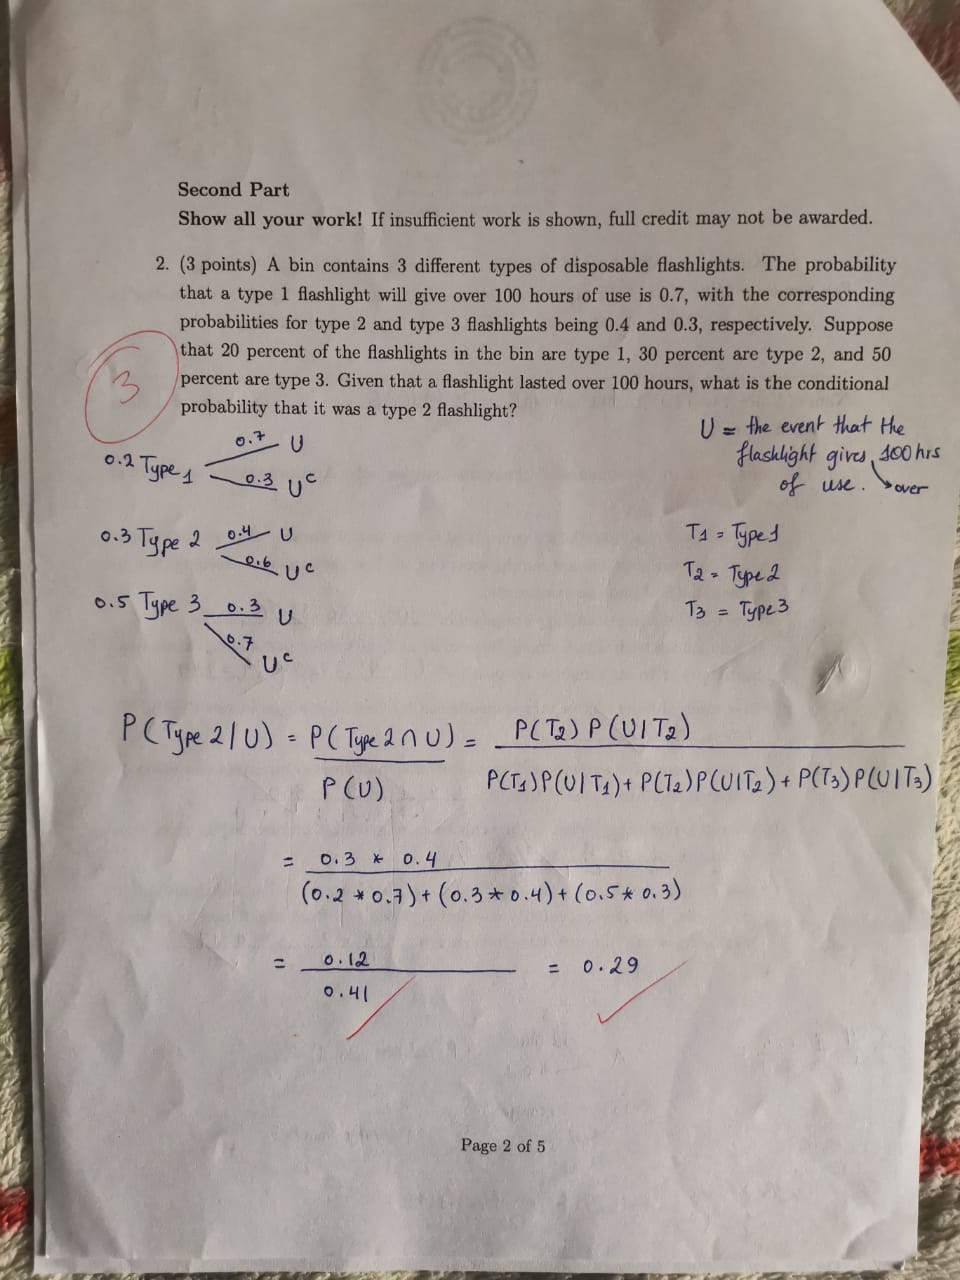 Second Part
Show all your work! If insufficient work is shown, full credit may not be awarded.
2. (3 points) A bin contains 3 different types of disposable flashlights. The probability
that a type 1 flashlight will give over 100 hours of use is 0.7, with the corresponding
probabilities for type 2 and type 3 flashlights being 0.4 and 0.3, respectively. Suppose
that 20 percent of the flashlights in the bin are type 1, 30 percent are type 2, and 50
percent are type 3. Given that a flashlight lasted over 100 hours, what is the conditional
probability that it was a type 2 flashlight?
3
U = the event that the
flashlight gives 100 hrs
of use. over
0.2 Type 1 0.7 U
0.3 Uᶜ
0.3 Type 2 0.4 U
0.6 Uᶜ
0.5 Type 3 0.3 U
0.7
Uᶜ
T1 = Type 1
T2 = Type 2
T3 = Type 3
P(Type 2 | U) = P(Type 2 ∩ U) = P(T₂) P(U | T₂)
P(U) P(T₁)P(U | T₁) + P(T₂)P(U | T₂) + P(T₃)P(U | T₃)
= 0.3 * 0.4
(0.2 * 0.7) + (0.3 * 0.4) + (0.5 * 0.3)
= 0.12 = 0.29
0.41
Page 2 of 5